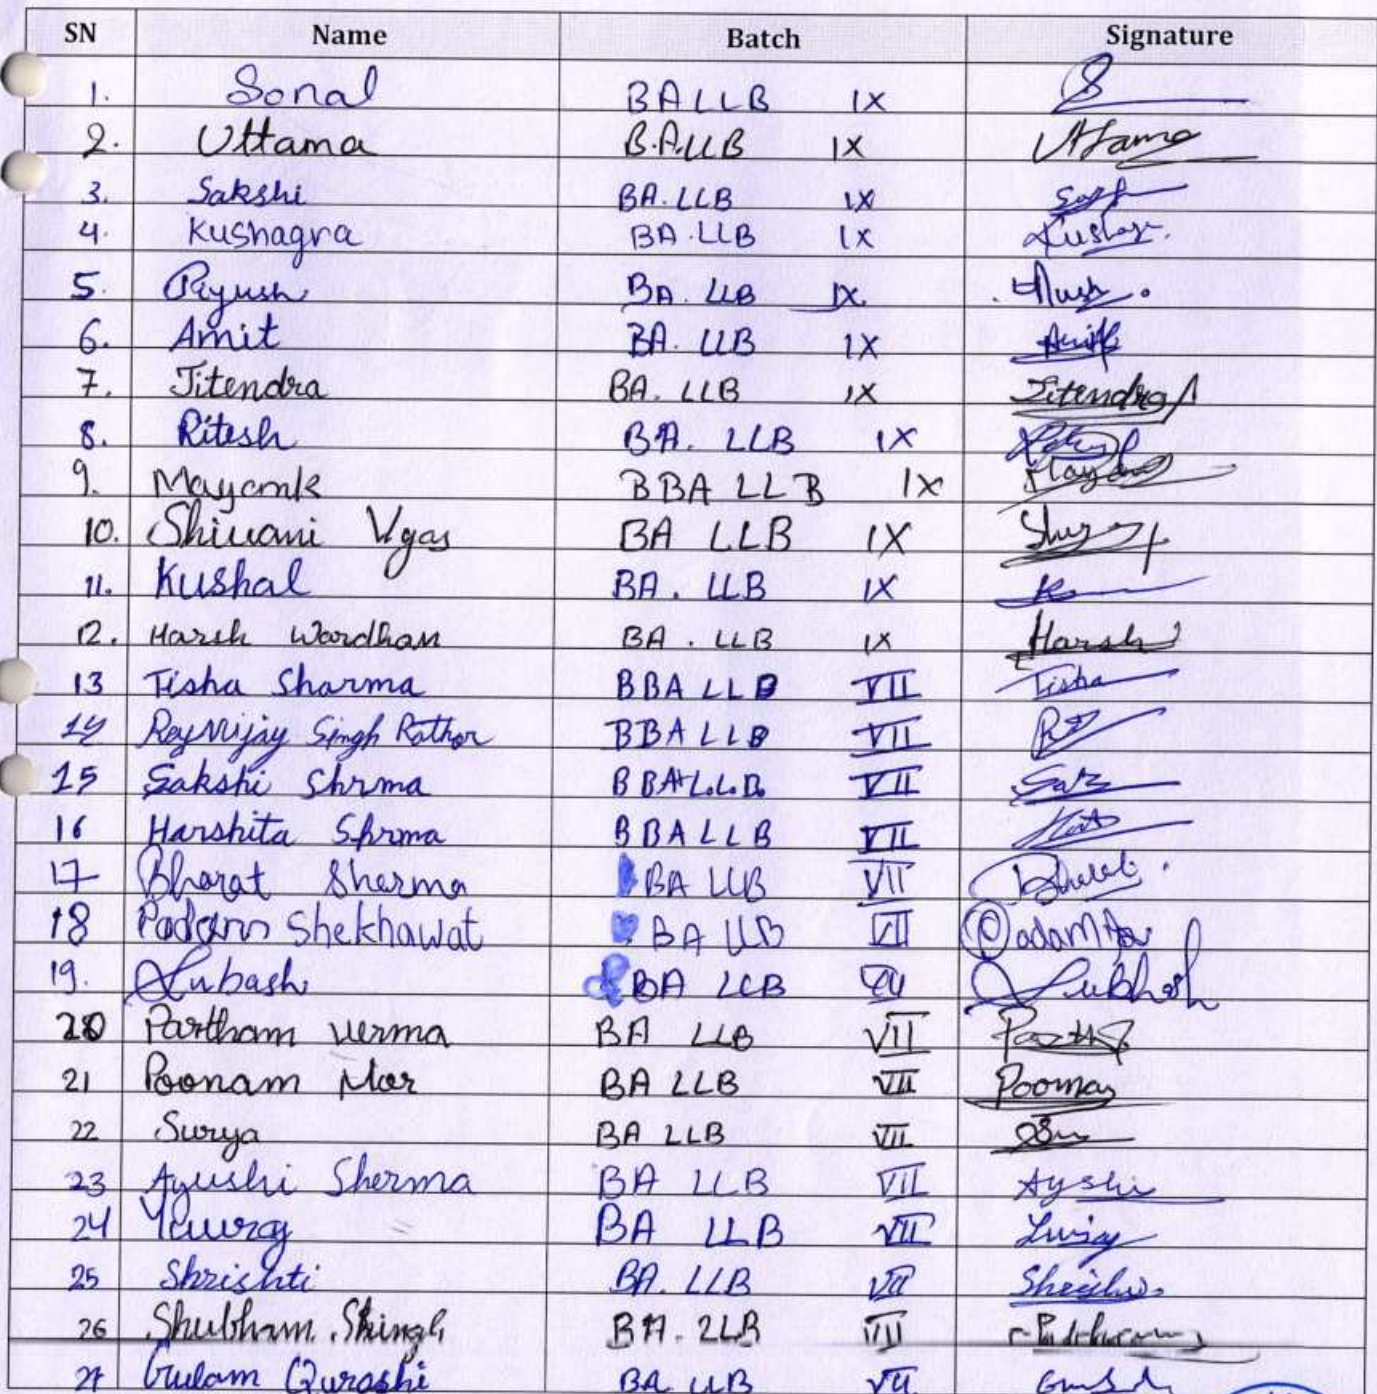 SN Name Batch Signature
1. Sonal BALLB IX
2. Uttama B.A.LLB IX Uttama
3. Sakshi BA.LLB IX
4. Kushagra BA.LLB IX
5. Piyush BA. LLB IX
6. Amit BA. LLB IX
7. Jitendra BA. LLB IX Jitendra
8. Ritesh BA. LLB IX
9. Mayank BBA LLB IX
10. Shivani Vyas BA LLB IX
11. Kushal BA. LLB IX
12. Harsh Wardhan BA. LLB IX Harsh
13 Tisha Sharma BBA LLB VII Tisha
14 Rajvijay Singh Rathor BBA LLB VII
15 Sakshi Shrma BBA L.L.B. VII
16 Harshita Shrma BBA LLB VII
17 Bharat Sharma BA LLB VII
18 Shekhawat BA LLB VII
19. Subash BA LLB VII Subhash
20 Partham verma BA LLB VII
21 Poonam Mor BA LLB VII Poonam
22 Surya BA LLB VII
23 Ayushi Sharma BA LLB VII Ayshi
24 Yuvraj BA LLB VII
25 Shrishti BA. LLB VII
26 Shubham BA. LLB VII
27 Gulam Qurashi BA LLB VII